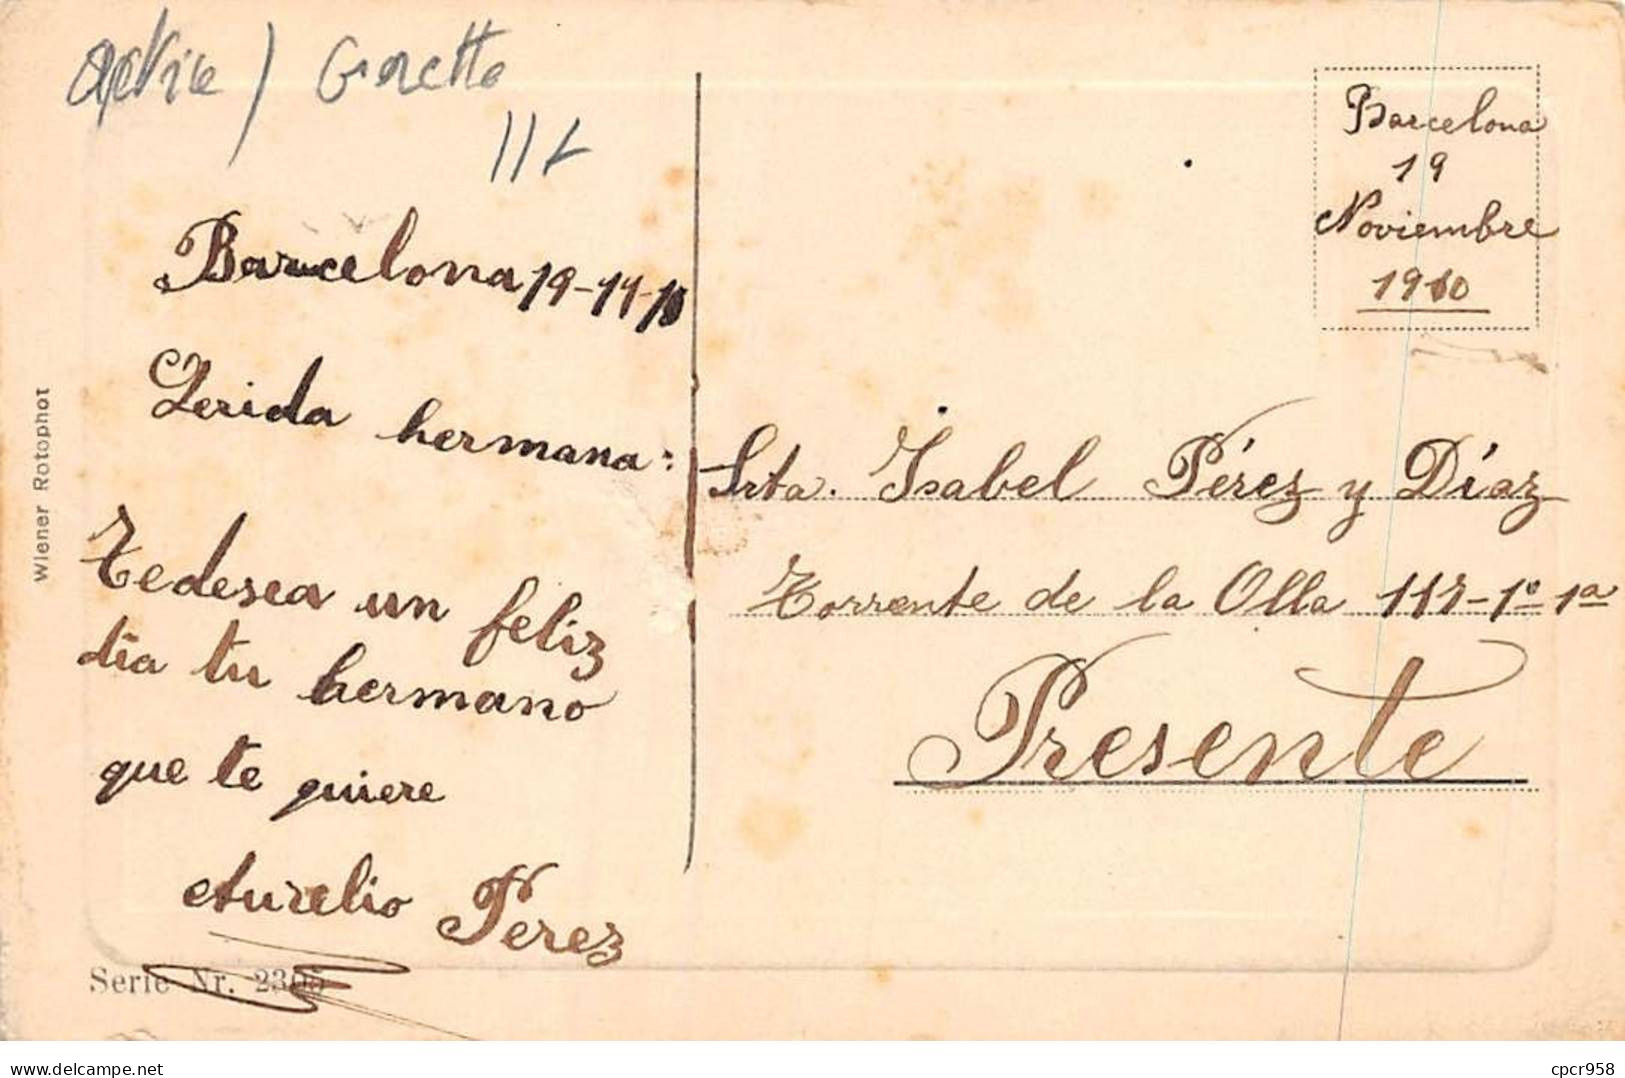 Goretta
Barcelona 19-11-10
Qerida hermana:
Tedesea un feliz
día tu hermano
que te quiere
Aurelio Perez
Serie Nr. 2305
Wiener Rotophot
Barcelona
19
Noviembre
1910
Srta. Isabel Pérez y Díaz
Torrente de la Olla 111-1º-1ª
Presente
delcampe.net
cpcr958